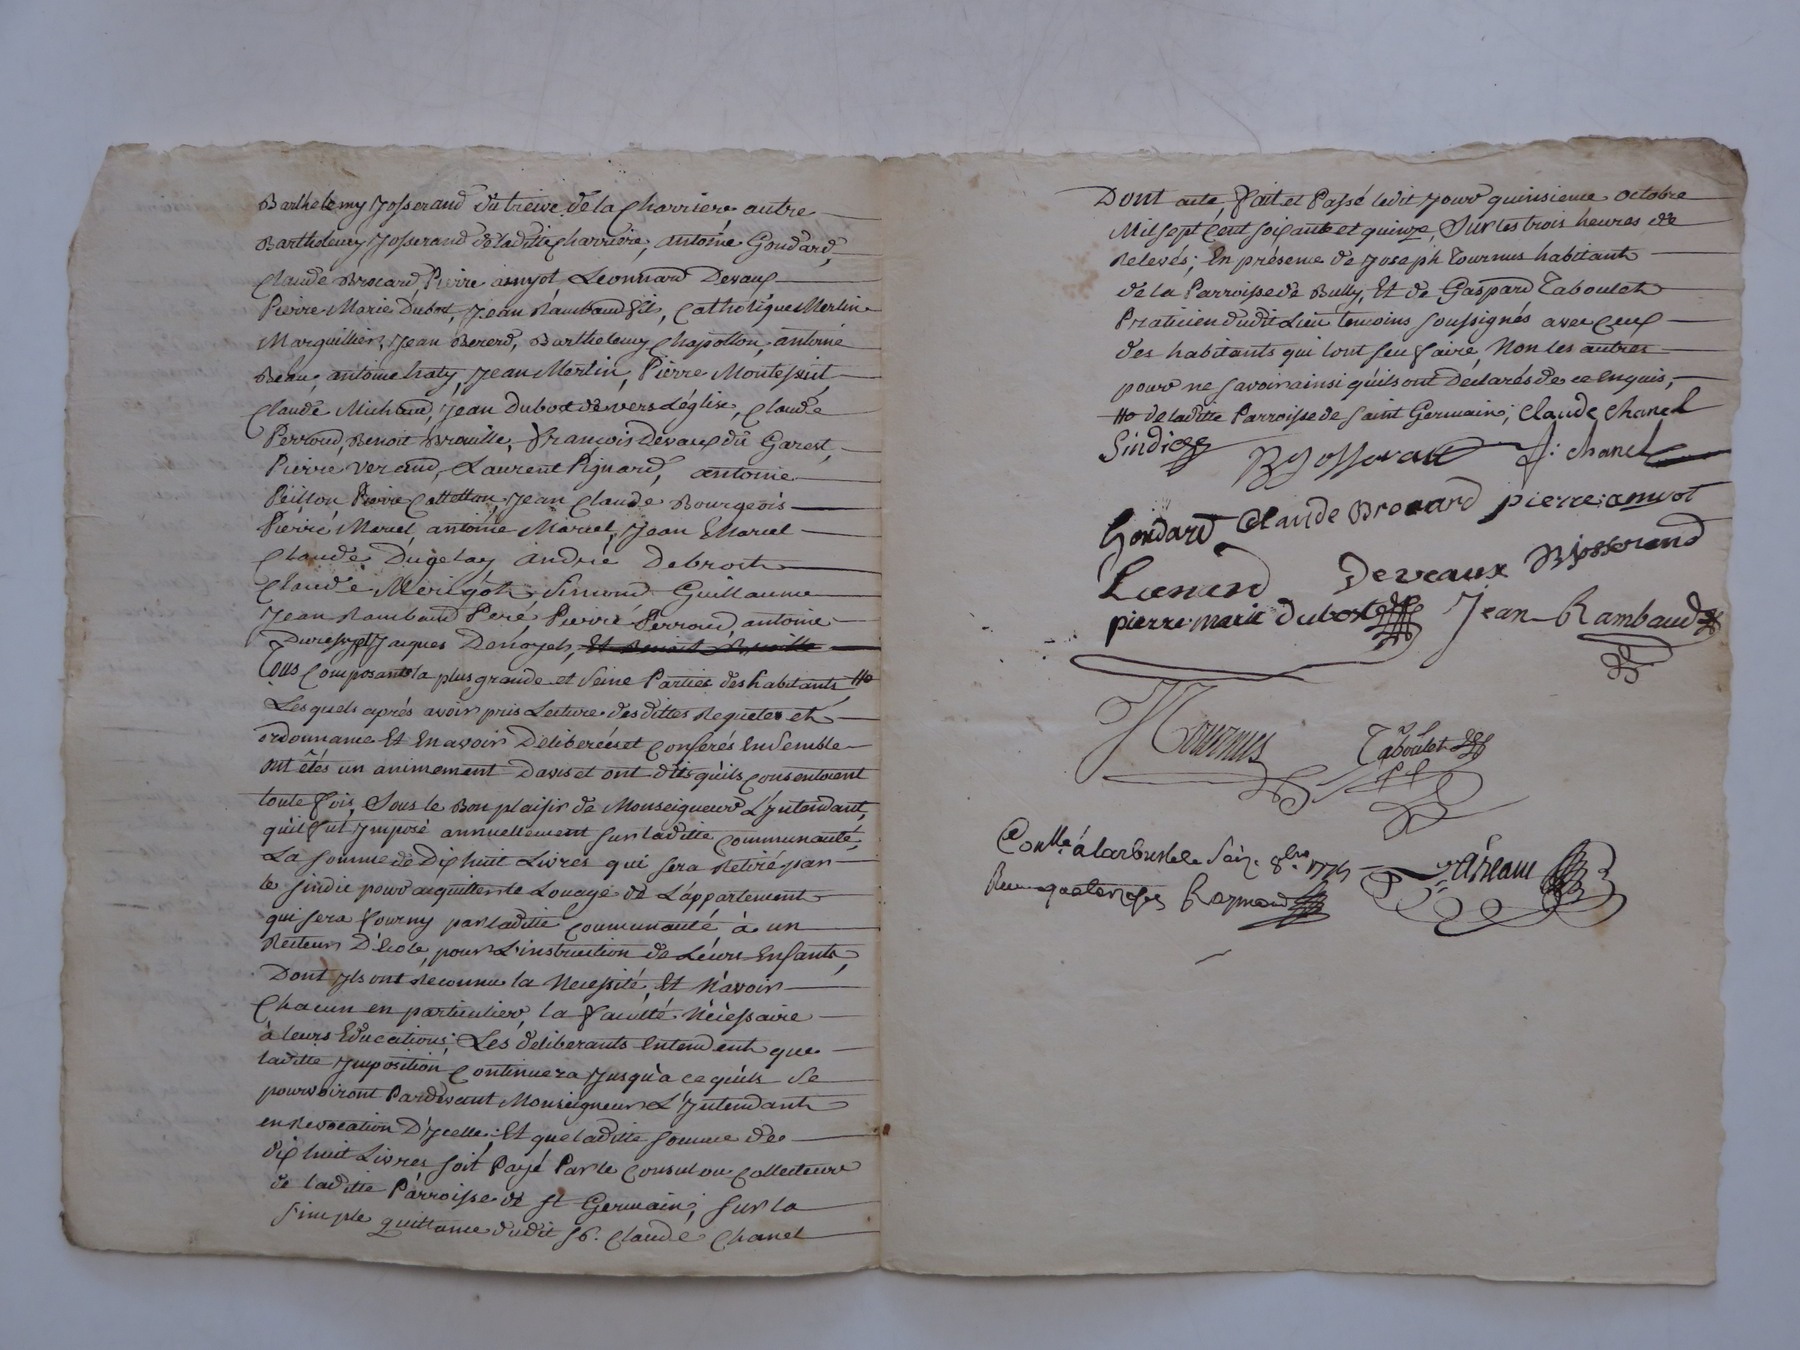 Barthelemy Josserand du treive de la Charriere autre
Barthelemy Josserand de laditte Charriere, antoine Goudard,
Claude Brocard, Pierre amyot, Leonnard Devaux
Pierre Marie Dubost, Jean Rambaud fils, Catholique Merlin
Marguillier, Jean Bererd, Barthelemy Chapotton, antoine
Beau, antoine, Jean Merlin, Pierre Montessuit,
Claude Michaud, Jean Dubost de vers L'église, Claude
Perroud, Benoit Brouille, françois Devaux du Garest,
Pierre verand, Laurent Pignard, antoine
Peillon Pierre Jean Claude Bourgeois
Pierre Marcel, antoine Marcel, Jean Marcel
Claude Dugelay andrié Debrost
Claude Simond Guillaume
Jean Rambaud Peré, Pierre Perroud, antoine
Jaques Denoyel, Et Benoit Brouille
Tous Composants la plus grande et Seine Parties des habitants #
Lesquels aprés avoir pris Lecture desdittes Requetes et
ordonnance Et En avoir Deliberées et Conferés Ensemble
ont étés un animement Davis et ont dits quils Consentoient
toute fois, Sous le Bon plaisir de Monseigneur L'Jntendant,
quil fut Jmposé annuellement sur laditte Communauté,
La somme de Dix huit Livres qui sera Retiré par
le sindic pour acquitter le Louage de L'appartement
qui sera fourny par laditte Communauté à un
Recteur D'Ecole, pour L'instruction de Leurs Enfants,
Dont Jls ont Reconnu la Necessité, Et N'avoir
Chacun en particulier, la faculté Nécessaire
à leurs Educations; Les déliberants entendent que
laditte Jmposition Continuera Jusqu'a ce quils se
pourvoiront Pardevant Monseigneur L'Jntendant
en Revocation D'Jcelle; Et que laditte somme de
dix huit Livres soit Payé Par le Consul ou Collecteur
de laditte Parroisse de st Germain; sur la
simple quittance dudit sr. Claude Chanel
Dont acte, fait et Passé ledit Jour quinsieme octobre
Mil sept Cent soixante et quinze, Sur les trois heures de
Relevés; En présence de Joseph Tournus habitant
de la Parroisse de Bully, Et de Gaspard Taboulet
Praticien dudit Lieu temoins soussignés avec Ceux
des habitants qui l'ont sçu faire, Non les autres
pour ne savoir ainsi quils ont Déclarés de ce Enquis,
# de laditte Parroisse de Saint Germain; Claude Chanel
Sindic
B Josserand f: chanel
Goudard Claude Brocard pierre amiot
Lienard Deveaux B Josserand
pierre marie Dubost Jean Rambaud
J Tournus Taboulet
Conlle. à larbresle le Seiz. 8bre 1775